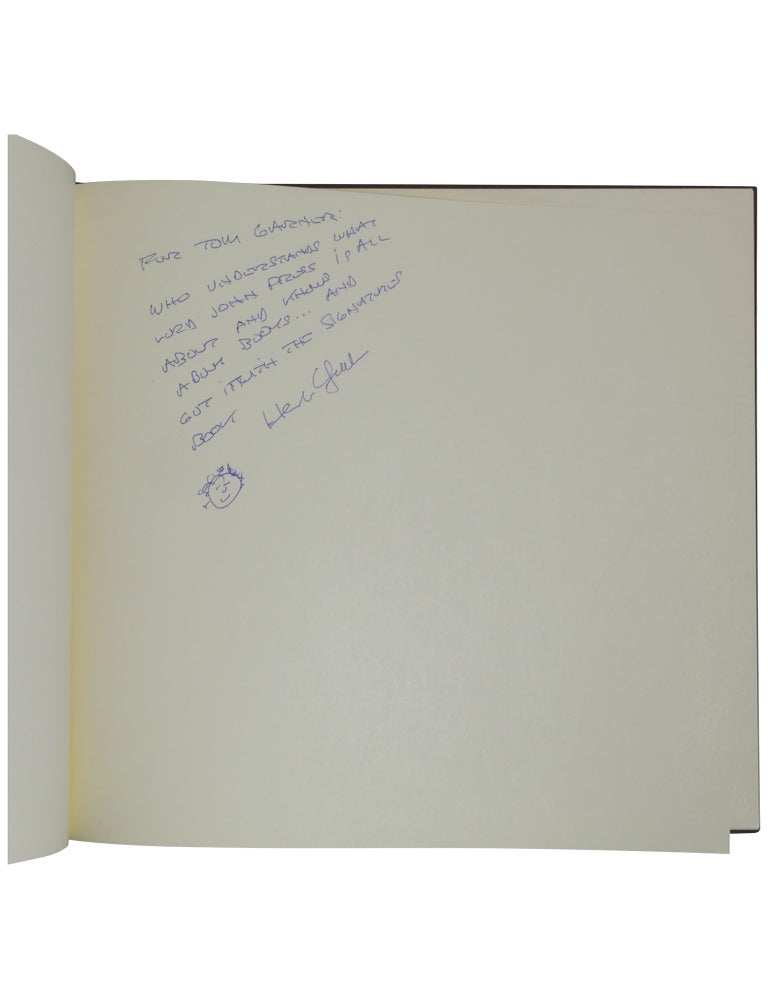 FOR TOM GARNER:
WHO UNDERSTANDS WHAT
LORD JOHN PRESS IS ALL
ABOUT AND KNOWS
ABOUT BOOKS... AND
GOT WITH THE SIGNATURES
BOOK Herb Yellin